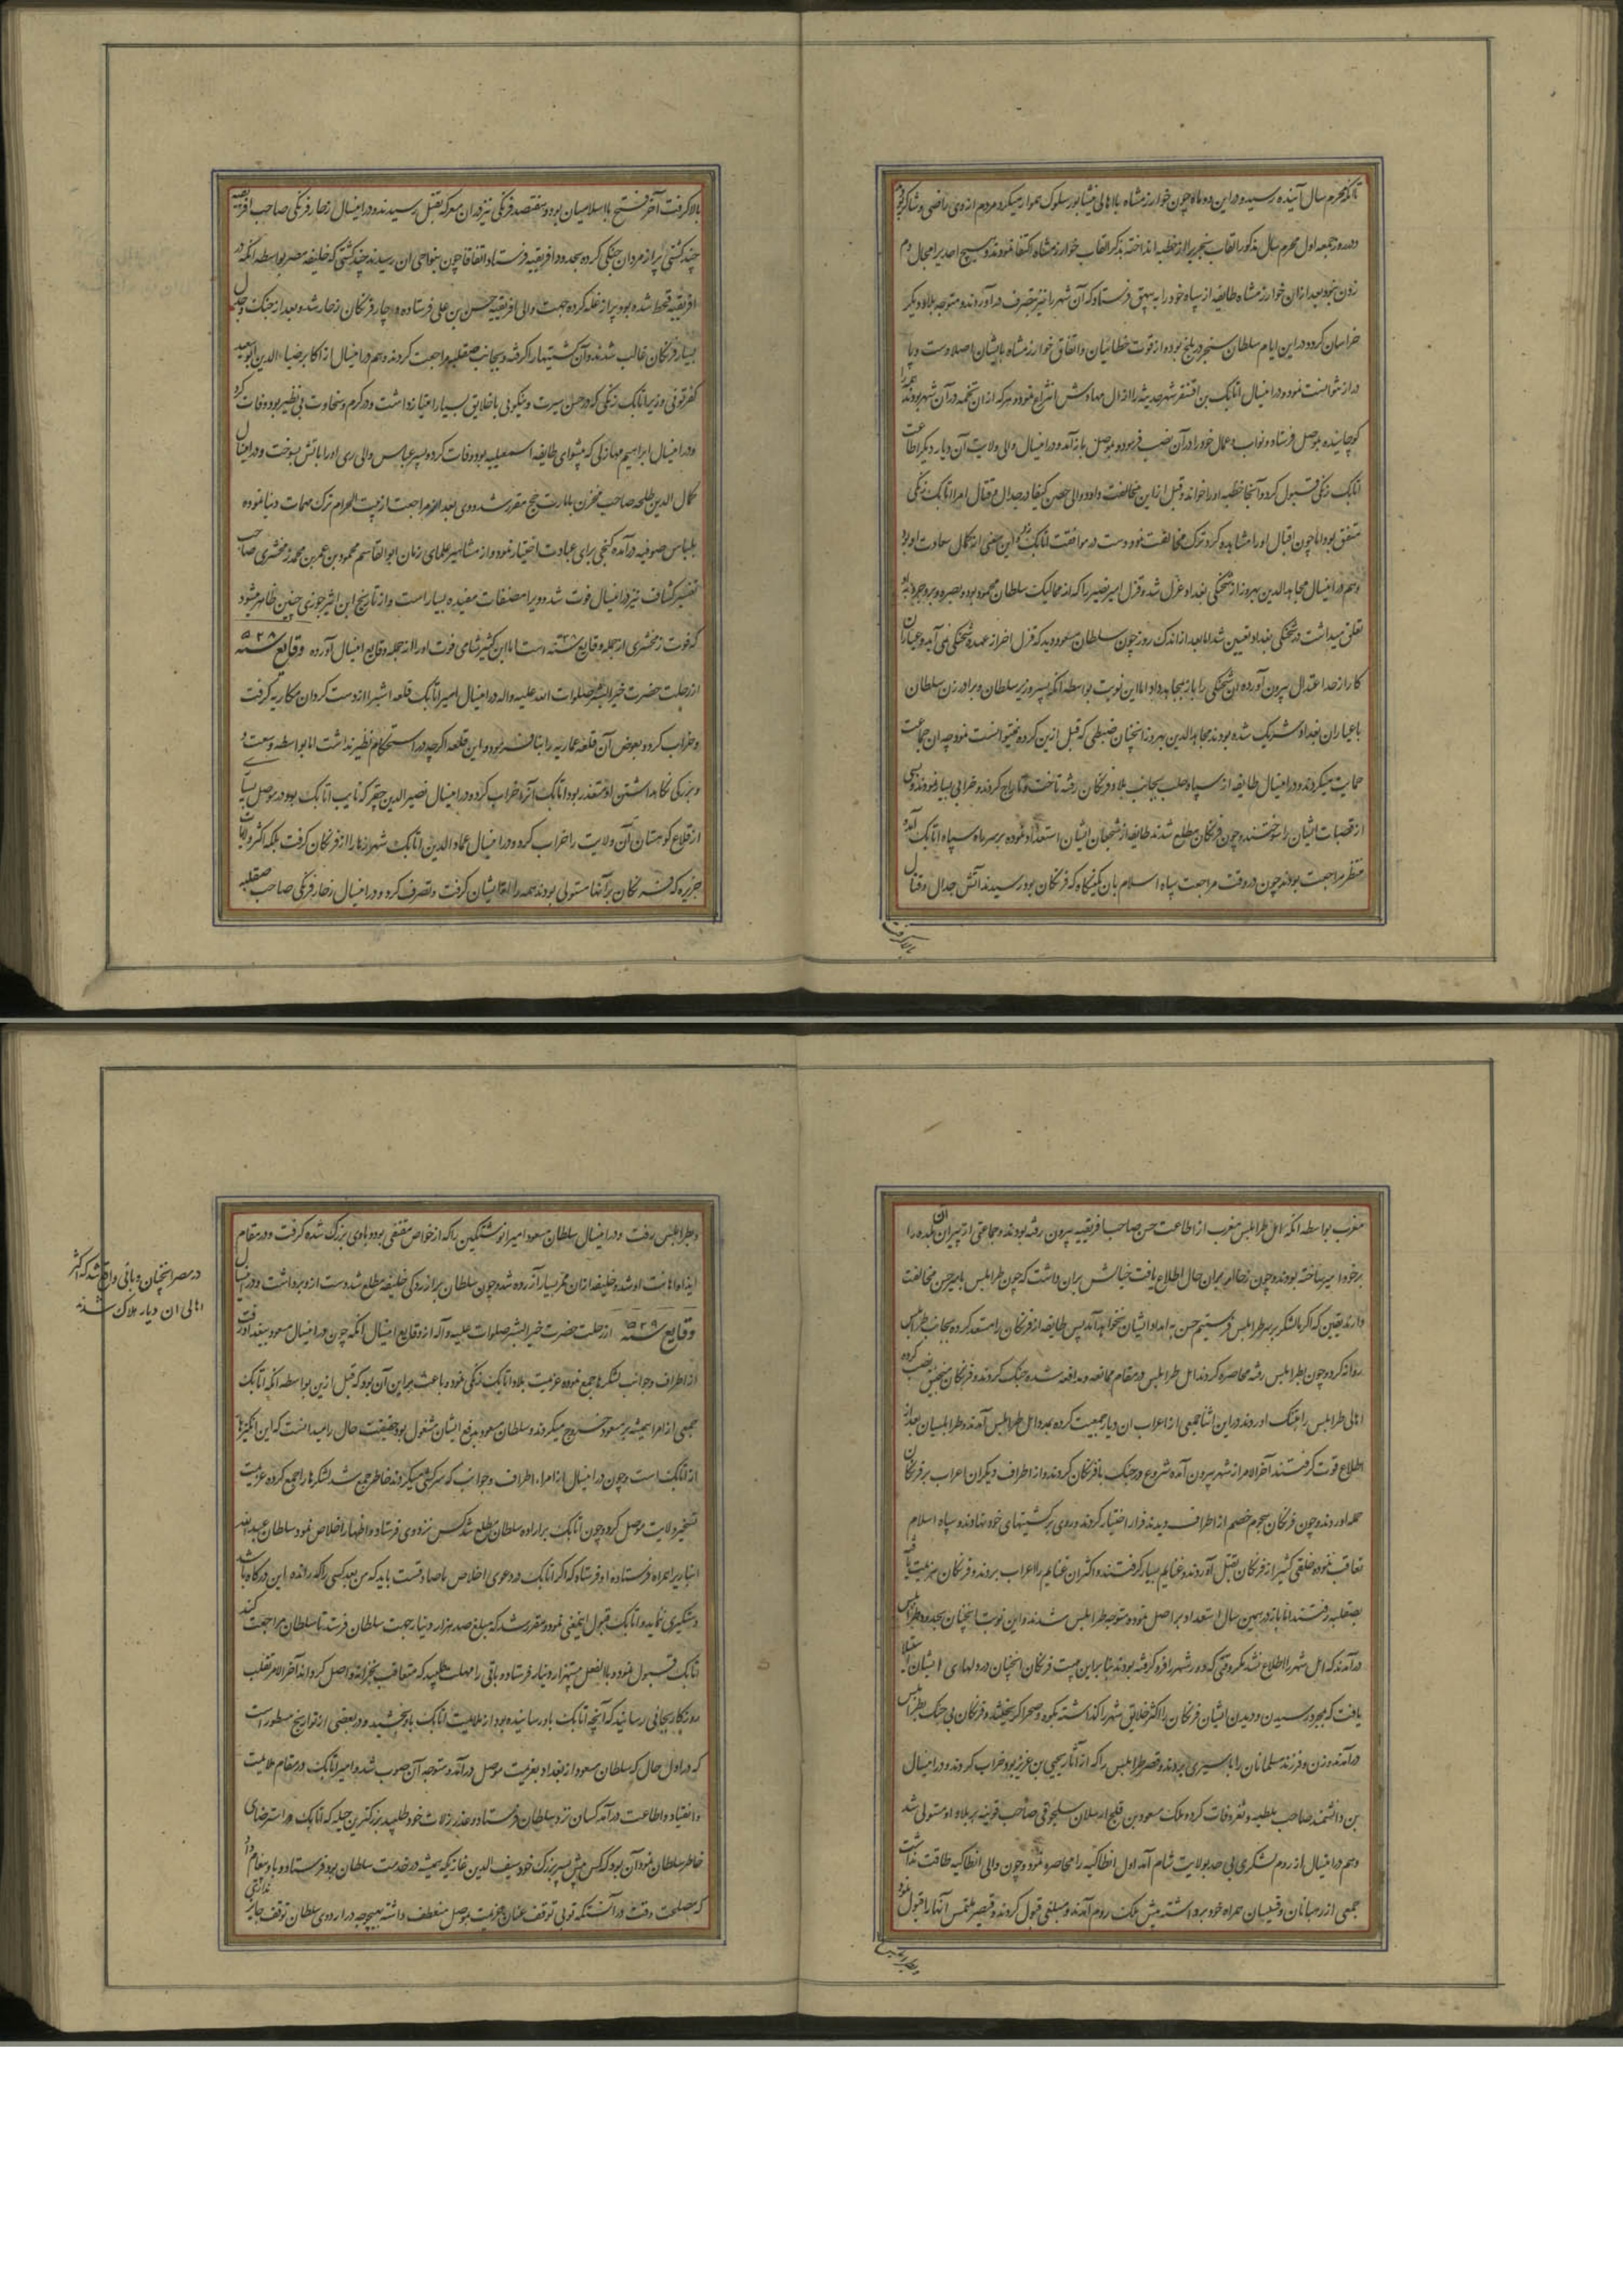 تا آنکه محرم سال آینده رسید و در این دو ماه چون خوارزمشاه با اهالی نیشابور سلوک هموار میکرد مردم از وی راضی و شاکر
در روز جمعه اول محرم سال مذکور القاب سنجر را از خطبه انداخته بذکر القاب خوارزمشاه اکتفا نمودند و هیچ احدیرا مجال دم
زدن نبود بعد از ان خوارزمشاه طایفه از سپاه خود را به بیهق فرستاد که آن شهر را نیز بتصرف در آوردند و متوجه بلاد دیگر
خراسان کرد و در این ایام سلطان سنجر در بلخ بود و از قوت خطائیان و اتفاق خوارزمشاه با ایشان اصلا دست و پا
دراز نتوانست نمود و در اینسال اتابک بن اقسنقر شهر حدیثه را از ال مهارش انتزاع نمود و هر که از ان تخمه در آن شهر بودند همه را
کوچانیده بموصل فرستاد و نواب و عمال خود را در آن نصب فرمود و بموصل باز آمد و در اینسال والی ولایت آن دیار دیگر اطاعت
اتابک زنگی قبول کرد و آنجا خطبه او را خواند و قبل از این مخالفت داود والی حصن کیفا در جدال و قتال امرا اتابک زنگی
متفق بود اما چون اقبال او را مشاهده کرد ترک مخالفت نمود و دست در موافقت اتابک زد و این معنی از کمال سعادت او بود
و هم در اینسال مجاهد الدین بهروز از شحنگی بغداد عزل شد و قزل امیر را که از ممالیک سلطان محمود بود و بصره و بروجرد
تعلق میداشت در شحنگی بغداد تعیین شد اما بعد از اندک روز چون سلطان مسعود دید که قزل اخر از عهده شحنگی نمی آید و عیاران
کار از حد اعتدال بیرون آورده آن شحنگی را باز بمجاهد داد اما این نوبت بواسطه آنکه پسر وزیر سلطان و برادر زن سلطان
با عیاران بغداد شریک شده بودند مجاهد الدین بهروز آنچنان ضبطی که قبل ازین کرده نمیتوانست نمود چه ان جماعت
حمایت میکردند و در اینسال طایفه از سپاه حلب بجانب بلاد فرنگان رفته تاخت و تاراج کردند و خرابی بسیار نمودند و بسی
از قصبات ایشان را سوختند و چون فرنگان مطلع شدند طایفه از شجعان ایشان استعداد نموده بر سر راه سپاه اتابک آمده
منتظر مراجعت بودند چون در وقت مراجعت سپاه اسلام بان کمینگاه که فرنگان بود رسیدند آتش جدال و قتال
بالا گرفت
بالا گرفت آخر فتح با اسلامیان بود و هفتصد فرنگی نیز در ان معرکه بقتل رسیدند و در اینسال زحار فرنگی صاحب افریقیه
چند کشتی پر از مردان جنگی کرده بحدود افریقیه فرستاد و اتفاقا چون بنواحی ان رسیدند چند کشتی که خلیفه مصر بواسطه آنکه در
افریقیه قحط شده بود پر از غله کرده جهت والی افریقیه حسن بن علی فرستاده دوچار فرنگان زحار شد و بعد از جنگ و جدال
بسیار فرنگان غالب شدند و آن کشتیها را گرفته و بجانب صقلیه مراجعت کردند و هم در اینسال از اکابر ضیاء الدین ابو سعید
کفرتوثی وزیر اتابک زنگی که در حسن سیرت و نیکویی با خلایق بسیار امتیاز داشت و در کرم و سخاوت بی نظیر بود وفات کرد
و در اینسال ابراهیم مهمازلی که پیشوای طایفه اسمعیلیه بود وفات کرد و پسر عباس والی ری او را باتش بسوخت و در اینسال
کمال الدین طلحه صاحب مخزن بامارت حج مقرر شد و وی بعد از مراجعت از بیت الحرام ترک مهمات دنیا نموده
بلباس صوفیه در آمده کنجی برای عبادت اختیار نمود و از مشاهیر علمای زمان ابو القاسم محمود بن عمر بن محمد زمخشری صاحب
تفسیر کشاف نیز در اینسال فوت شد و ویرا مصنفات مفیده بسیار است و از تاریخ ابن اثیر جوزی چنین ظاهر میشود
که فوت زمخشری از جمله وقایع سنه است اما ابن کثیر شامی فوت او را از جمله وقایع اینسال آورده وقایع سنه ۵۲۸
از رحلت حضرت خیر البشر صلوات الله علیه واله در اینسال امیر اتابک قلعه اشب را از دست کردان هکاریه گرفت
و خراب کرد و بعوض آن قلعه عمادیه را بنا فرمود و این قلعه اگرچه در استحکام نظیر نداشت اما بواسطه وسعت و
بزرگی نگاهداشتن او متعذر بود اتابک آنرا خراب کرد و در اینسال نصیر الدین جقر که نایب اتابک بود در موصل بسیار
از قلاع کوهستان آن ولایت را خراب کرد و در اینسال عماد الدین اتابک شهر زها را از فرنگان گرفت بلکه اکثر ولایات
جزیره که فرنگان بر آنها مستولی بودند همه را از ایشان گرفت و تصرف کرد و در اینسال زحار فرنگی صاحب صقلیه
مغرب بواسطه انکه اهل طرابلس مغرب از اطاعت حسن صاحب افریقیه بیرون رفته بودند و جماعتی از پیران ان بلده را
بر خود امیر ساخته بودند و چون زحار بران حال اطلاع یافت خیالش بران داشت که چون طرابلس با میر حسن مخالفت
دارند یقین که اگر ما لشکر بر سر طرابلس فرستیم حسن به امداد ایشان نخواهد آمد پس طایفه از فرنگان را مستعد کرده بجانب طرابلس
روانه کرد و چون بطرابلس رفته محاصره کردند اهل طرابلس در مقام ممانعه و مدافعه شده جنگ کردند و فرنگان منجنیق نصب کرده
اهالی طرابلس را بتنگ اوردند در این اثنا جمعی از اعراب ان دیار جمعیت کرده بمدد اهل طرابلس آمدند و طرابلسیان بعد از
اطلاع قوت گرفتند آخر الامر از شهر بیرون آمده شروع در جنگ با فرنگان کردند و از اطراف دیگر ان اعراب بر فرنگان
حمله اوردند و چون فرنگان هجوم خصم از اطراف دیدند فرار اختیار کردند و روی بر کشتیهای خود نهادند و سپاه اسلام
تعاقب نموده خلقی کثیر از فرنگان بقتل آوردند و غنایم بسیار گرفتند و اکثر ان غنایم را اعراب بردند و فرنگان هزیمت یافته
بصقلیه رفتند اما باز در همین سال استعداد بر اصل نموده متوجه طرابلس شدند و این نوبت انچنان بحدود طرابلس
در آمدند که اهل شهر را اطلاع نشد مگر وقتی که دور شهر را فرو گرفته بودند بنابراین هیبت فرنگان انچنان در دلهای ایشان استیلا
یافت که بمجرد رسیدن و دیدن ایشان فرنگان را اکثر خلایق شهر را گذاشته بکوه و صحرا گریختند و فرنگان بی جنگ بطرابلس
در آمدند و زن و فرزند مسلمانان را باسیری بردند و قصر طرابلس را که از آثار یحیی بن عزیز بود خراب کردند و در اینسال
بن دانشمند صاحب ملطیه و ثغر وفات کرد و ملک مسعود بن قلیج ارسلان سلجوقی صاحب قونیه بر بلاد او مستولی شد
و هم در اینسال از روم لشکری بی حد بولایت شام آمد اول انطاکیه را محاصره نمود و چون والی انطاکیه طاقت نداشت
جمعی از رهبانان و قسیسان همراه خود برداشته پیش ملک روم آمدند و مبلغی قبول کردند و قیصر ملتمس آنها را قبول نمود
و بطرابلس
و بطرابلس رفت و در اینسال سلطان مسعود امیر انوشتکین را که از خواص مقتفی بود و باوی بزرگ شده گرفت و در مقام
ایذا و اهانت او شد و خلیفه از ان ممر بسیار آزرده شد و چون سلطان بر آزردگی خلیفه مطلع شد دست از و برداشت و در اینسال
در مصر انچنان وبائی واقع شد که اکثر
اهالی ان دیار هلاک شدند
وقایع سنه ۵۲۹ از رحلت حضرت خیر البشر صلوات علیه و آله از وقایع اینسال آنکه چون در اینسال مسعود ببغداد رفت
از اطراف و جوانب لشکرها جمع نموده عزیمت بلاد اتابک زنگی نمود و باعث بر این آن بود که قبل ازین بواسطه انکه اتابک
جمعی از امرا همیشه بر مسعود خروج میکردند و سلطان مسعود بدفع ایشان مشغول بود و حقیقت حال را میدانست که این انگیزها
از اتابک است و چون در اینسال از امراء اطراف و جوانب که سرکشی میکردند خاطر جمع شد لشکرها را جمع کرده عزیمت
تسخیر ولایت موصل کرد و چون اتابک بر اراده سلطان مطلع شد کس نزد وی فرستاد و اظهار اخلاص نمود سلطان عبدالله
انباریرا همراه فرستاده او فرستاد که اگر اتابک در دعوی اخلاص با صادقست باید که من بعد کسی را که رانده این درگاه باشد
دستگیری ننماید و اتابک قبول اینمعنی نمود و مقرر شد که مبلغ صد هزار دینار جهت سلطان فرستد تا سلطان مراجعت کند
اتابک قبول نمود و بالفعل بیست هزار دینار فرستاد و باقی را مهلت طلبید که متعاقب بخزانه واصل گرداند آخر الامر تقلب
روزگار بجائی رسانید که آنچه اتابک باو رسانیده بود از ملایمت اتابک باو بخشید و در بعضی از تواریخ مسطور است
که در اول حال که سلطان مسعود از بغداد بعزیمت موصل در آمد و متوجه آن صوب شد و امیر اتابک در مقام ملایمت
و انقیاد و اطاعت در آمد کسان نزد سلطان فرستاد و عذر زلات خود طلبید بزرگترین حیله که اتابک در استرضای
خاطر سلطان نمود آن بود که کس پیش پسر بزرگ خود سیف الدین غازی که همیشه در خدمت سلطان بود فرستاد و باو پیغام داد
که مصلحت وقت در آنست که تو بی توقف عنان عزیمت بموصل منعطف داشته بهیچوجه در اردوی سلطان توقف جایز نداری